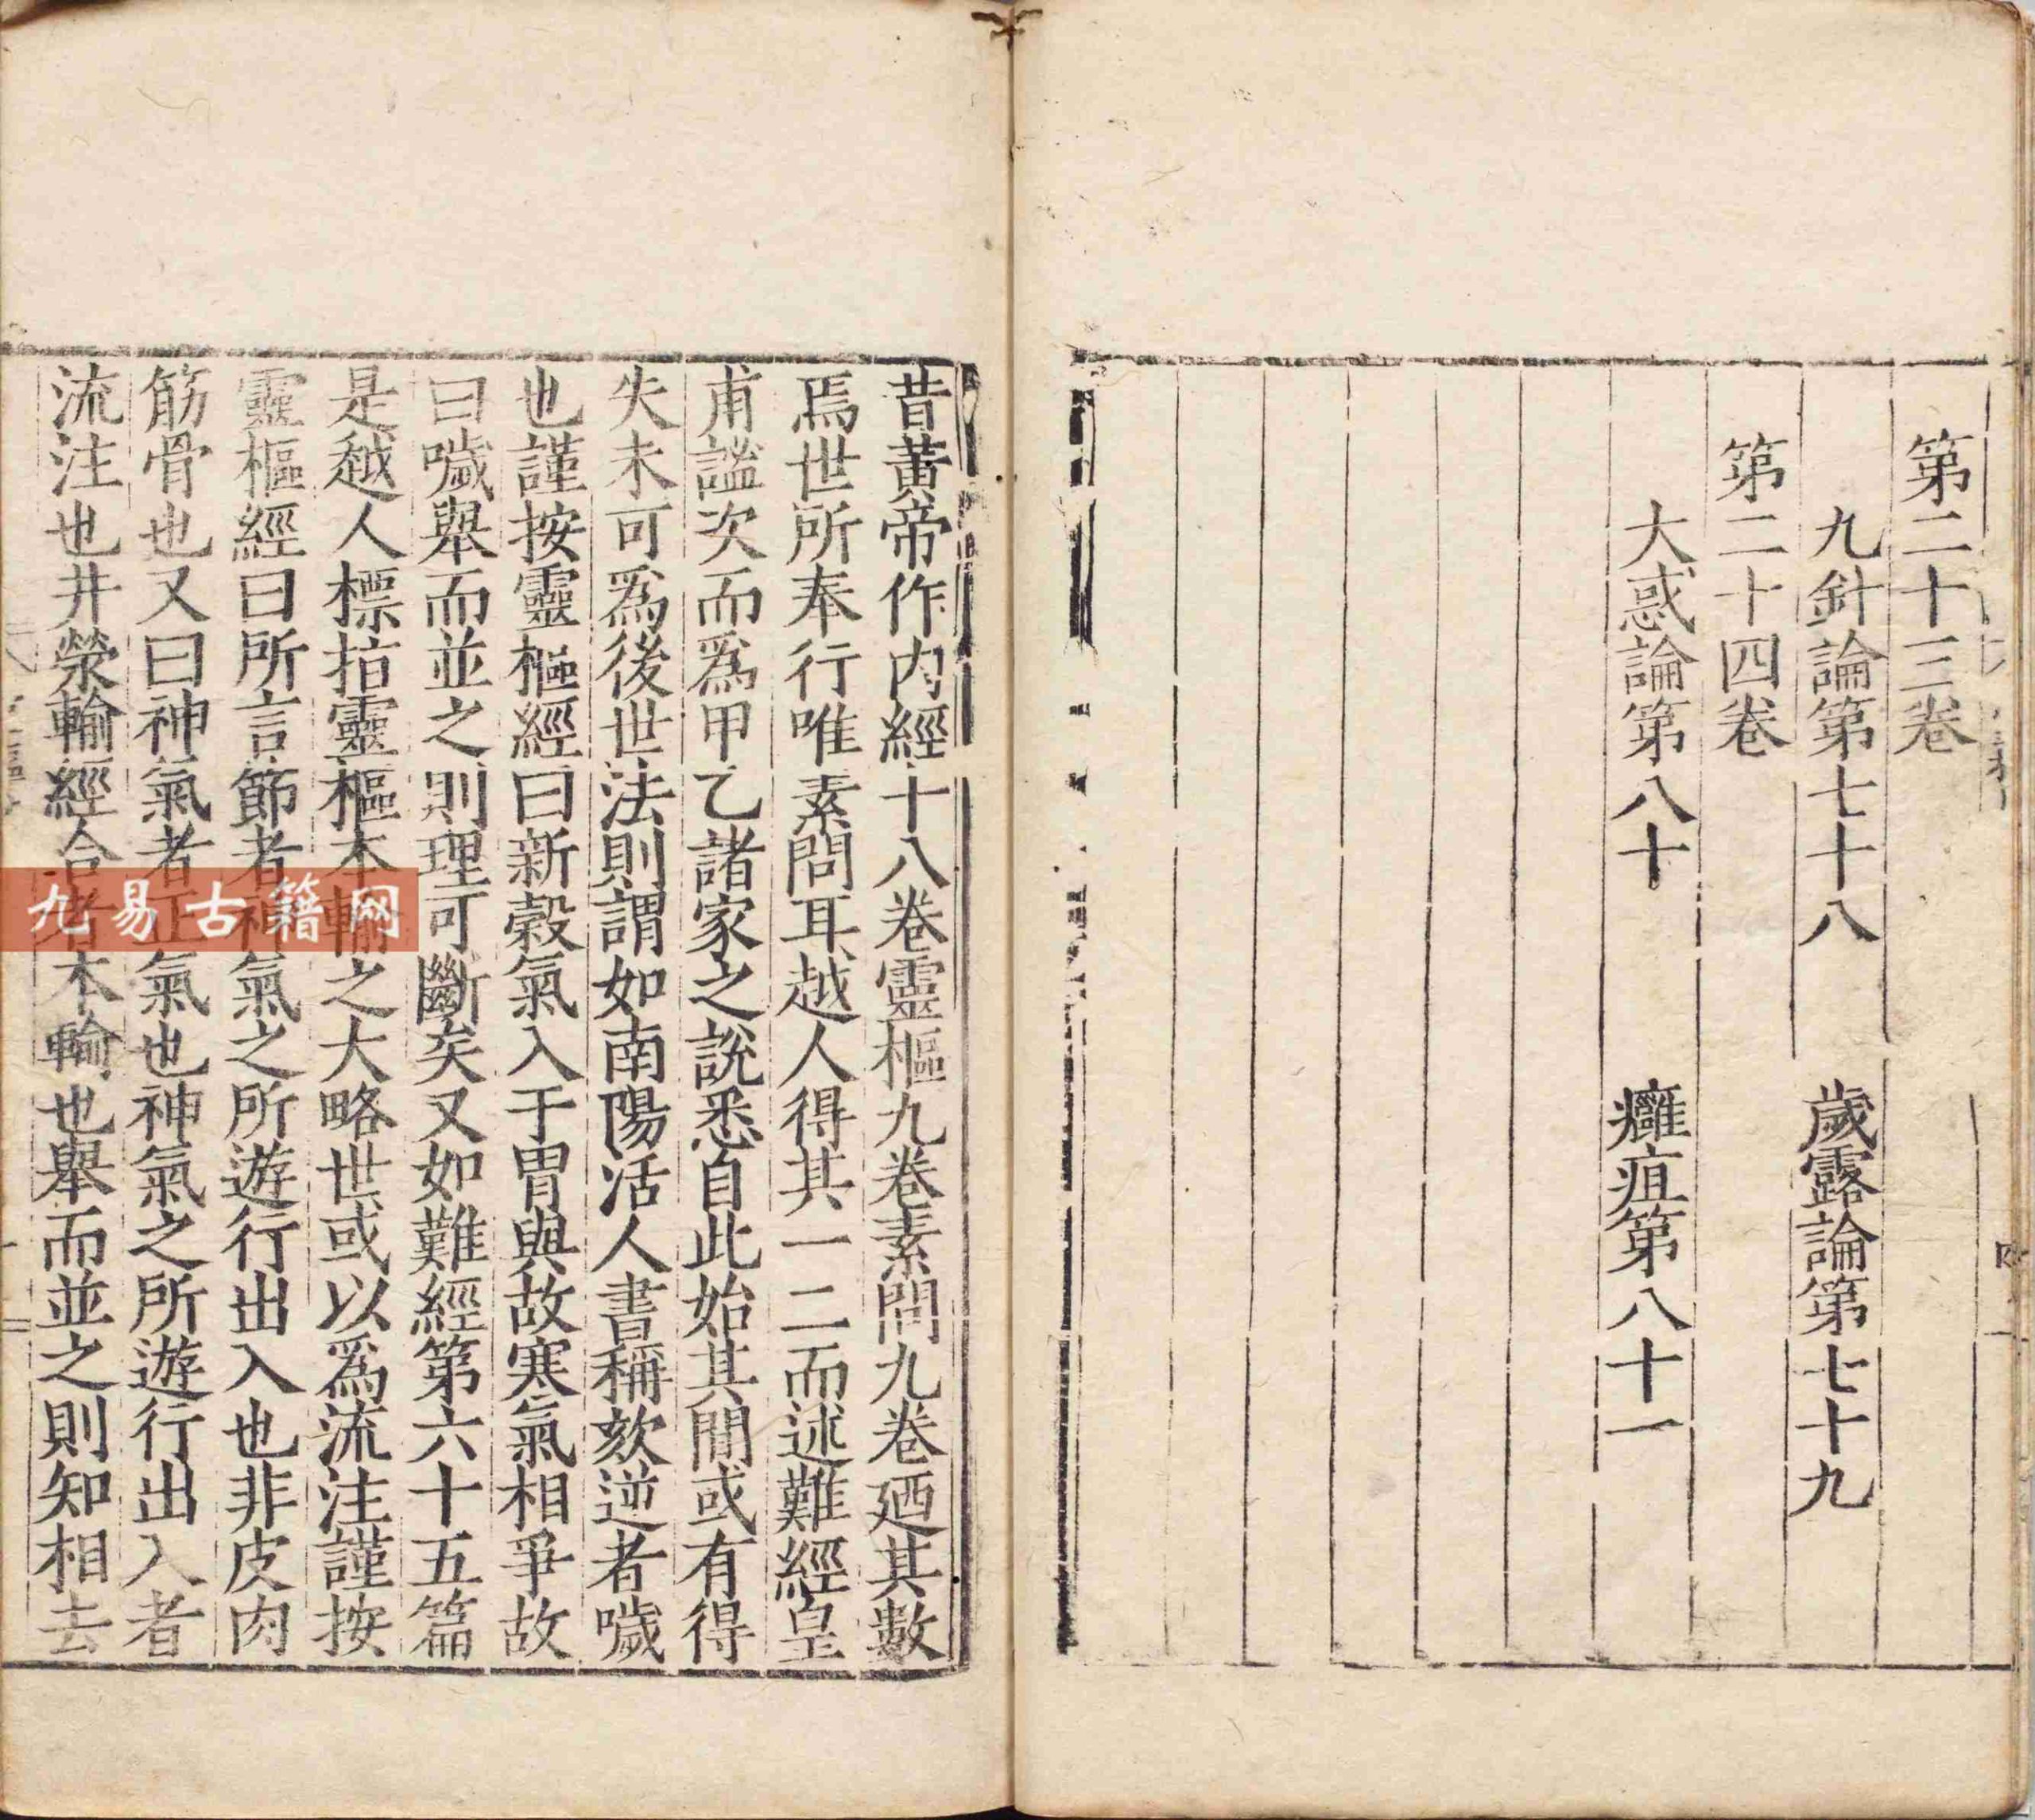 第二十三卷
九針論第七十八　歲露論第七十九
第二十四卷
大惑論第八十　癰疽第八十一
昔黃帝作內經十八卷靈樞九卷素問九卷廼其數
焉世所奉行唯素問耳越人得其一二而述難經皇
甫謐次而爲甲乙諸家之說悉自此始其間或有得
失未可爲後世法則謂如南陽活人書稱欬逆者噦
也謹按靈樞經曰新穀氣入于胃與故寒氣相爭故
曰噦舉而並之則理可斷矣又如難經第六十五篇
是越人標指靈樞本輸之大略世或以爲流注謹按
靈樞經曰所言節者神氣之所遊行出入也非皮肉
筋骨也又曰神氣者正氣也神氣之所遊行出入者
流注也井滎輸經合者本輸也舉而並之則知相去
九易古籍网